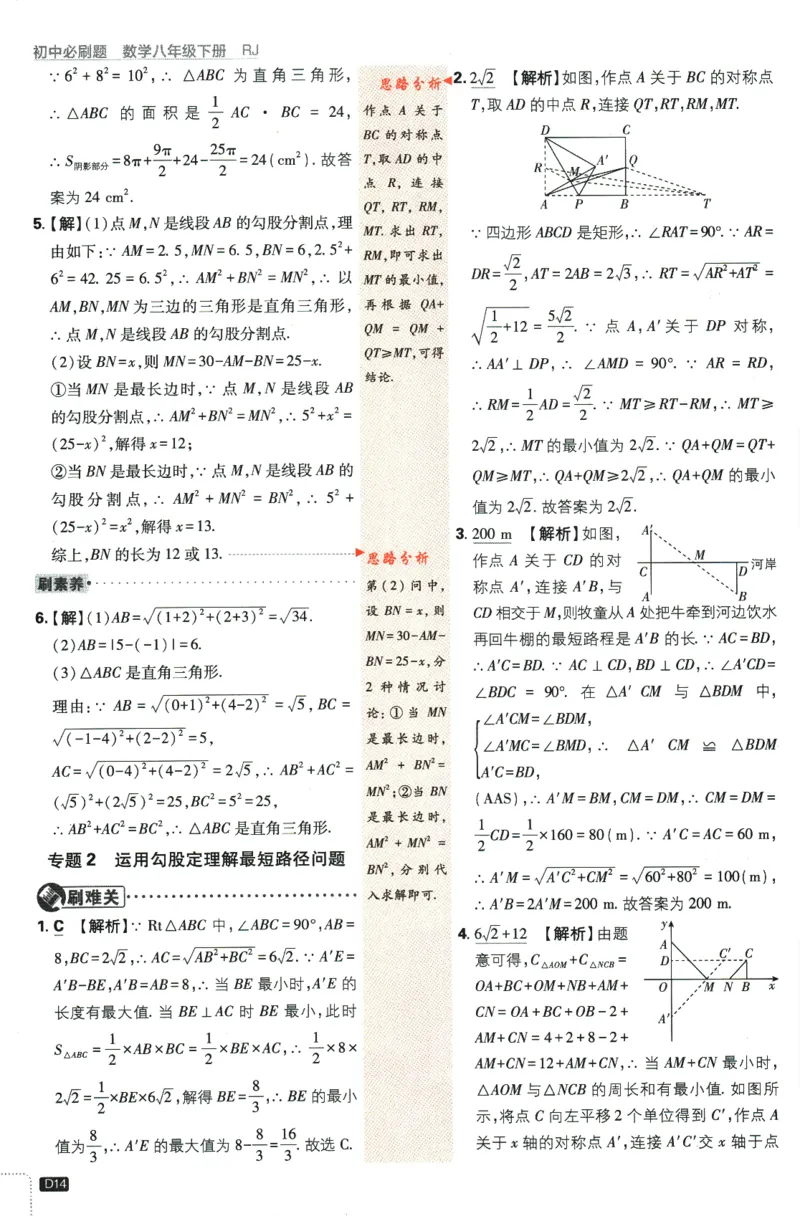 初中必刷题 数学八年级下册 RJ
∵6²+8²=10²,∴△ABC 为直角三角形,
∴△ABC 的面积是 1/2 AC·BC=24,
∴S阴影部分=8π+9π/2+24-25π/2=24(cm²).故答
案为 24 cm².
5.【解】(1)点M,N是线段AB的勾股分割点,理
由如下:∵AM=2.5,MN=6.5,BN=6,2.5²+
6²=42.25=6.5²,∴AM²+BN²=MN²,∴以
AM,BN,MN为三边的三角形是直角三角形,
∴点M,N是线段AB的勾股分割点.
(2)设BN=x,则MN=30-AM-BN=25-x.
①当MN是最长边时,∵点M,N是线段AB
的勾股分割点,∴AM²+BN²=MN²,∴5²+x²=
(25-x)²,解得x=12;
②当BN是最长边时,∵点M,N是线段AB的
勾股分割点,∴AM²+MN²=BN²,∴5²+
(25-x)²=x²,解得x=13.
综上,BN的长为12或13.
刷素养
6.【解】(1)AB=√((1+2)²+(2+3)²)=√34.
(2)AB=|5-(-1)|=6.
(3)△ABC是直角三角形.
理由:∵AB=√((0+1)²+(4-2)²)=√5,BC=
√((-1-4)²+(2-2)²)=5,
AC=√((0-4)²+(4-2)²)=2√5,∴AB²+AC²=
(√5)²+(2√5)²=25,BC²=5²=25,
∴AB²+AC²=BC²,∴△ABC是直角三角形.
专题2 运用勾股定理解最短路径问题
刷难关
1.C 【解析】∵Rt△ABC中,∠ABC=90°,AB=
8,BC=2√2,∴AC=√(AB²+BC²)=6√2.∵A′E=
A′B-BE,A′B=AB=8,∴当BE最小时,A′E的
长度有最大值.当BE⊥AC时BE最小,此时
S△ABC=1/2×AB×BC=1/2×BE×AC,∴1/2×8×
2√2=1/2×BE×6√2,解得BE=8/3,∴BE的最小
值为8/3,∴A′E的最大值为8-8/3=16/3.故选C.
D14
思路分析
作点A关于
BC的对称点
T,取AD的中
点R,连接
QT,RT,RM,
MT.求出RT,
RM,即可求出
MT的最小值,
再根据QA+
QM=QM+
QT≥MT,可得
结论.
思路分析
第(2)问中,
设BN=x,则
MN=30-AM-
BN=25-x,分
2种情况讨
论:①当MN
是最长边时,
AM²+BN²=
MN²;②当BN
是最长边时,
AM²+MN²=
BN²,分别代
入求解即可.
2.2√2 【解析】如图,作点A关于BC的对称点
T,取AD的中点R,连接QT,RT,RM,MT.
D C
A′ Q
R M
A P B T
∵四边形ABCD是矩形,∴∠RAT=90°.∵AR=
DR=√2/2,AT=2AB=2√3,∴RT=√(AR²+AT²)=
√(1/2+12)=5√2/2.∵点A,A′关于DP对称,
∴AA′⊥DP,∴∠AMD=90°.∵AR=RD,
∴RM=1/2AD=√2/2.∵MT≥RT-RM,∴MT≥
2√2,∴MT的最小值为2√2.∵QA+QM=QT+
QM≥MT,∴QA+QM≥2√2,∴QA+QM的最小
值为2√2.故答案为2√2.
3.200 m 【解析】如图,
作点A关于CD的对
称点A′,连接A′B,与
A′ M
C D 河岸
A B
CD相交于M,则牧童从A处把牛牵到河边饮水
再回牛棚的最短路程是A′B的长.∵AC=BD,
∴A′C=BD.∵AC⊥CD,BD⊥CD,∴∠A′CD=
∠BDC=90°.在△A′CM与△BDM中,
∠A′CM=∠BDM,
∠A′MC=∠BMD,∴△A′CM≌△BDM
A′C=BD,
(AAS),∴A′M=BM,CM=DM,∴CM=DM=
1/2CD=1/2×160=80(m).∵A′C=AC=60 m,
∴A′M=√(A′C²+CM²)=√(60²+80²)=100(m),
∴A′B=2A′M=200 m.故答案为200 m.
4.6√2+12 【解析】由题
意可得,C△AOM+C△NCB=
OA+BC+OM+NB+AM+
CN=OA+BC+OB-2+
AM+CN=4+2+8-2+
y
A
D C′ C
O M N B x
A′
AM+CN=12+AM+CN,∴当AM+CN最小时,
△AOM与△NCB的周长和有最小值.如图所
示,将点C向左平移2个单位得到C′,作点A
关于x轴的对称点A′,连接A′C′交x轴于点